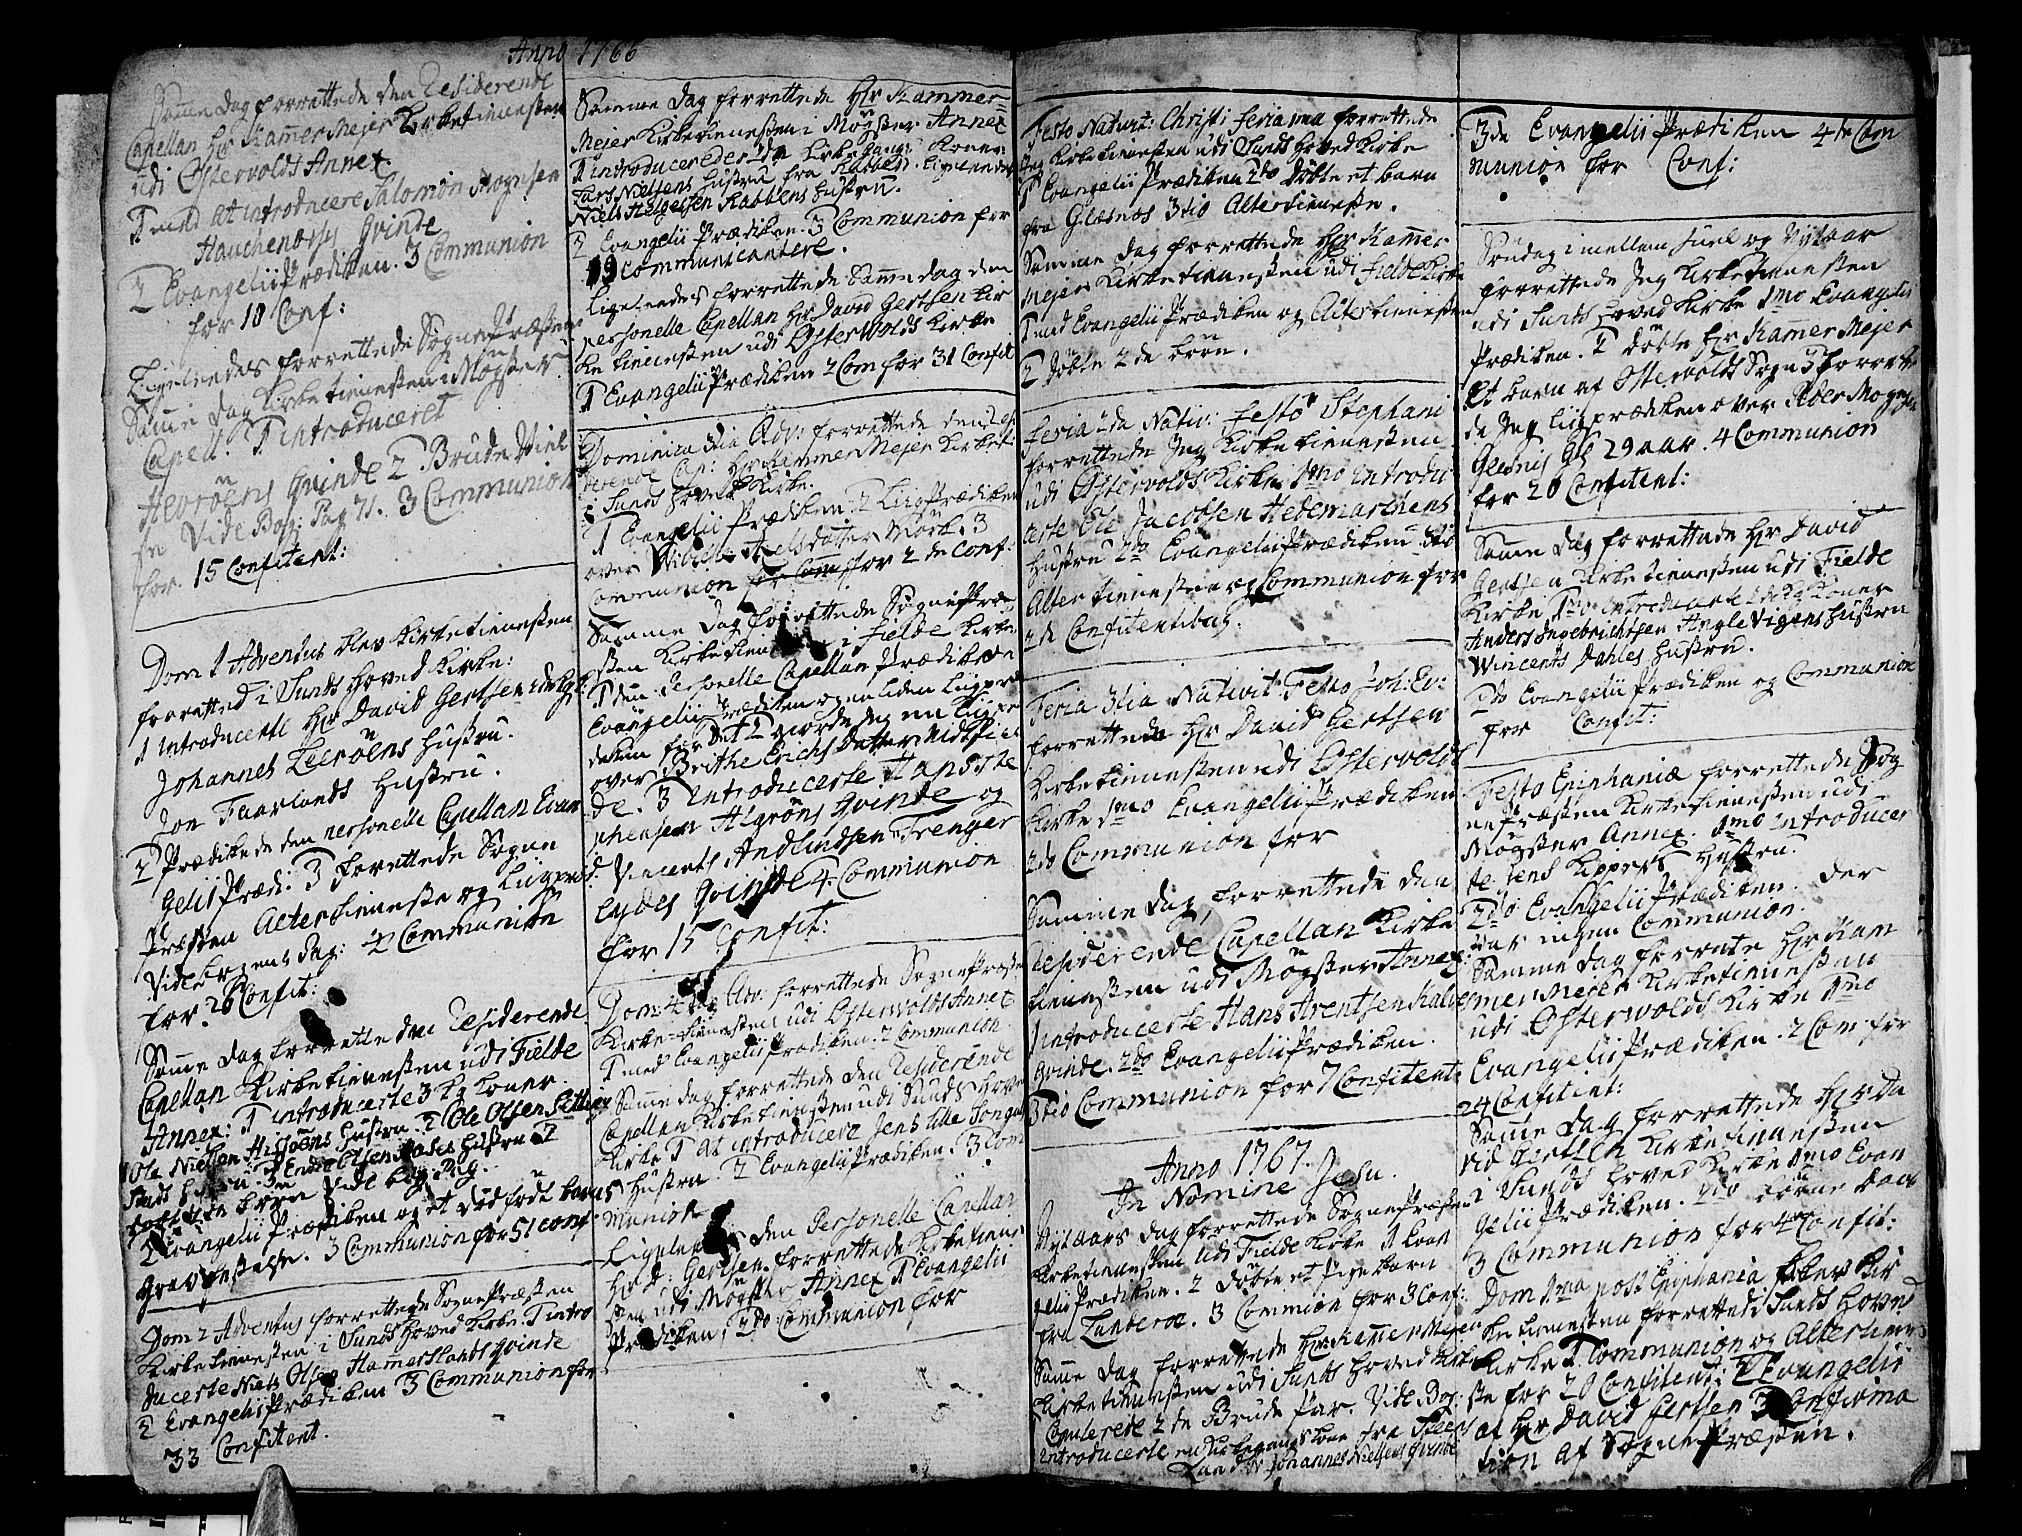 Anno 1766
Samme dag forrettede den Residerende
Capellan Hr Kammer Mejer Kirketienesten
udi Ostervolds Annex
1 med at introducere Salomon Mognsen
Hauchenæssys Qvinde
2 Evangelii Prædiken. 3 Communion
for 10 Conf:
Ligeledes forrettede Sogne Præsten
Samme dag Kirketienesten i Møgster
Capell. 1 introduceret
Hevrøens Qvinde 2 Brude Viel
se Vide Bog: Pag 71. 3 Communion
for 15 Confitent:
Dom 1 Adventus blev Kirketienesten
forretted i Sunds Hoved Kirke:
1 Introducerte Hr David Gertsen 2de
Johannes Leerøens Hustru.
Jon Faarlands Hustru.
2 Prædikede den personelle Capellan Evan
gelii Prædi: 3 forrettede Sogne
Præsten Altertieneste og
Vide Dag: 4 Communion
for 26 Confit:
Samme dag forrettede den Residerende
Capellan Kirketienesten udi Fielde
Annex: 1 introducerte 3 Kg Koner
1 Ole Nielsen Hustru. 2 Ole Olsen
2 Evangelii Prædiken og et død født barns
Gravfæstelse. 3 Communion for 51 conf:
Dom 2 Adventus forrettede Sogne Præsten
Kirketienesten i Sunds Hoved Kirke. 1 intro
ducerte Niels Olsen Hamerslands qvinde
2 Evangelii Prædiken 3 Communion for
33 Confitent.
Samme dag forrettede Hr Kammer=
Mejer Kirketienesten i Møgster Annex
1 introducerede 2de Kirkegangs Koner
Lars Nielsens Hustru fra ligeledes
Niels Helgesen Rabbens Hustru.
2 Evangelii Prædiken. 3 Communion for
19 Communicantere.
Ligeledes forrettede Samme dag den
personelle Capellan Hr David Gertsen Kir
ke tienesten udi Osterwolds Kirke
1 Evangelii Prædiken 2 Com for 31 Confit
Dominica 3tia Adv: forrettede den Resi
derende Cap: Hr Kammer Mejer Kirket:
i Sunds Hoved Kirke.
1 Evangelii Prædiken. 2 Liigprædiken
over Mørk. 3
Communion for 2 de Conf:
Samme dag forrettede Sogne Præ
sten Kirketienesten i Fielde Kirke
1 den Personelle Capellan Prædikede
Evangelii Prædiken og en liden Liigpræ
diken for det 2 giorde Jeg en Liigpr
over Brithe Erichs Datter
de. 3 Introducerte
phensen Algrøns Qvinde og
Vincents Andfindsen Trenger
eydes Qvinde 4. Communion
for 15 Confit:
Dom: 4 Adv: forrettede Sogne Præsten
Kirke-tienesten udi Osterwolds Annex
1 med Evangelii Prædiken. 2 Communion.
Samme dag forrettede den Residerende
Capellan Kirketienesten udi Sunds Hoved
Kirke 1 at introducere Jens Lille
Hustru. 2 Evangelii Prædiken. 3 Com
munion
Ligeledes den Personelle Capellan
Hr D: Gertsen forrettede Kirketiene
sten udi Møgster Annex 1 Evangelii
Prædiken, 2do Communion for
Festo Nativit: Christi feria 1ma forrettede
Jeg Kirketienesten udi Sunds Hoved Kirke
1 Evangelii Prædiken 2do Døbte et barn
fra Glæsnæs 3tio Altertieneste.
Samme dag forrettede Hr Kammer
Mejer Kirketienesten udi Fielde Kirke
1 med Evangelii Prædiken og Altertienesten
2 Døbte 2 de børn.
Feria 2da Nativ: Festo Stephani
forrettede Jeg Kirketienesten
udi Ostervolds Kirke 1mo introdu
certe Ole Jacobsen Hedemarchens
Hustru 2do Evangelii Prædiken 3tio
Altertieneste og Communion for
2 de Confitentibus.
Feria 3tia Nativit Festo Joh: Ev:
forrettede Hr David Gertsen
Kirketienesten udi Ostervolds
Kirke 1mo Evangelii Prædiken
2do Communion for
Samme dag forrettede den
Residerende Capellan Kirke
tienesten udi Møgster Annex
1 introducerte Hans Arentsen Kalves
Qvinde. 2do Evangelii Prædiken.
3tio Communion for 7 Confitent
Anno 1767.
In Nomine Jesu.
Nytaars dag forrettede Sogne Præsten
Kirketienesten udi Fielde Kirke 1 Evan
gelii Prædiken. 2 Døbte et Pige barn
fra Lunderøe. 3 Commion for 3 Conf:
Samme dag forrettede Hr Kammer Mejer
Kirketienesten udi Sunds Hoved Kirke
Copulerede 2 de Brude Par. Vide Bog:
introducerte en Kirkegangs Kone fra
Johannes Nielsens Qvinde
3de Evangelii Prædiken 4de Com
munion for Conf:
Søndag imellem Juel og Nytaar
forrettede Jeg Kirketienesten
udi Sunds Hoved Kirke 1mo Evangelii
Prædiken. 2 Døbte Hr Kammer Mejer
Et barn af Ostervolds Sogn 3 forrette
de Jeg Liigprædiken over Peder Mognsen
Glesnis Gl 29 aar. 4 Communion
for 20 Confitent:
Samme dag forrettede Hr David
Gertsen Kirketienesten udi Fielde
Kirke 1mo introducerte 2de Kg Koner
Anders Ingebrichtsen Angle Vigens Hustru
Wincents Dahles Hustru.
2do Evangelii Prædiken og Communion
for Confit:
Festo Epiphaniæ forrettede Sog
ne Præsten Kirketienesten udi
Møgster Annex. 1mo introducer
te Jens Kippers Hustru.
2do Evangelii Prædiken. Der
var ingen Communion.
Samme dag forrette Hr Kam
mer Mejer Kirketienesten
udi Osterwolds Kirke 1mo
Evangelii Prædiken. 2 Com for
24 Confitent:
Samme dag forrettede Hr Da
vid Gertsen Kirketienesten
i Sunds Hoved Kirke 1mo Evan
gelii Prædiken. 2do
3 Communion for 4 Confit:
Dom 1ma post Epiphania blev Kir
ke tienesten forretted i Sunds Hoved
Kirke 1 Communion og Altertiene
ste for 20 Confitent: 2 Evangelii
af Hr David Gertsen 3 Confirma
tion af Sogne Præsten.